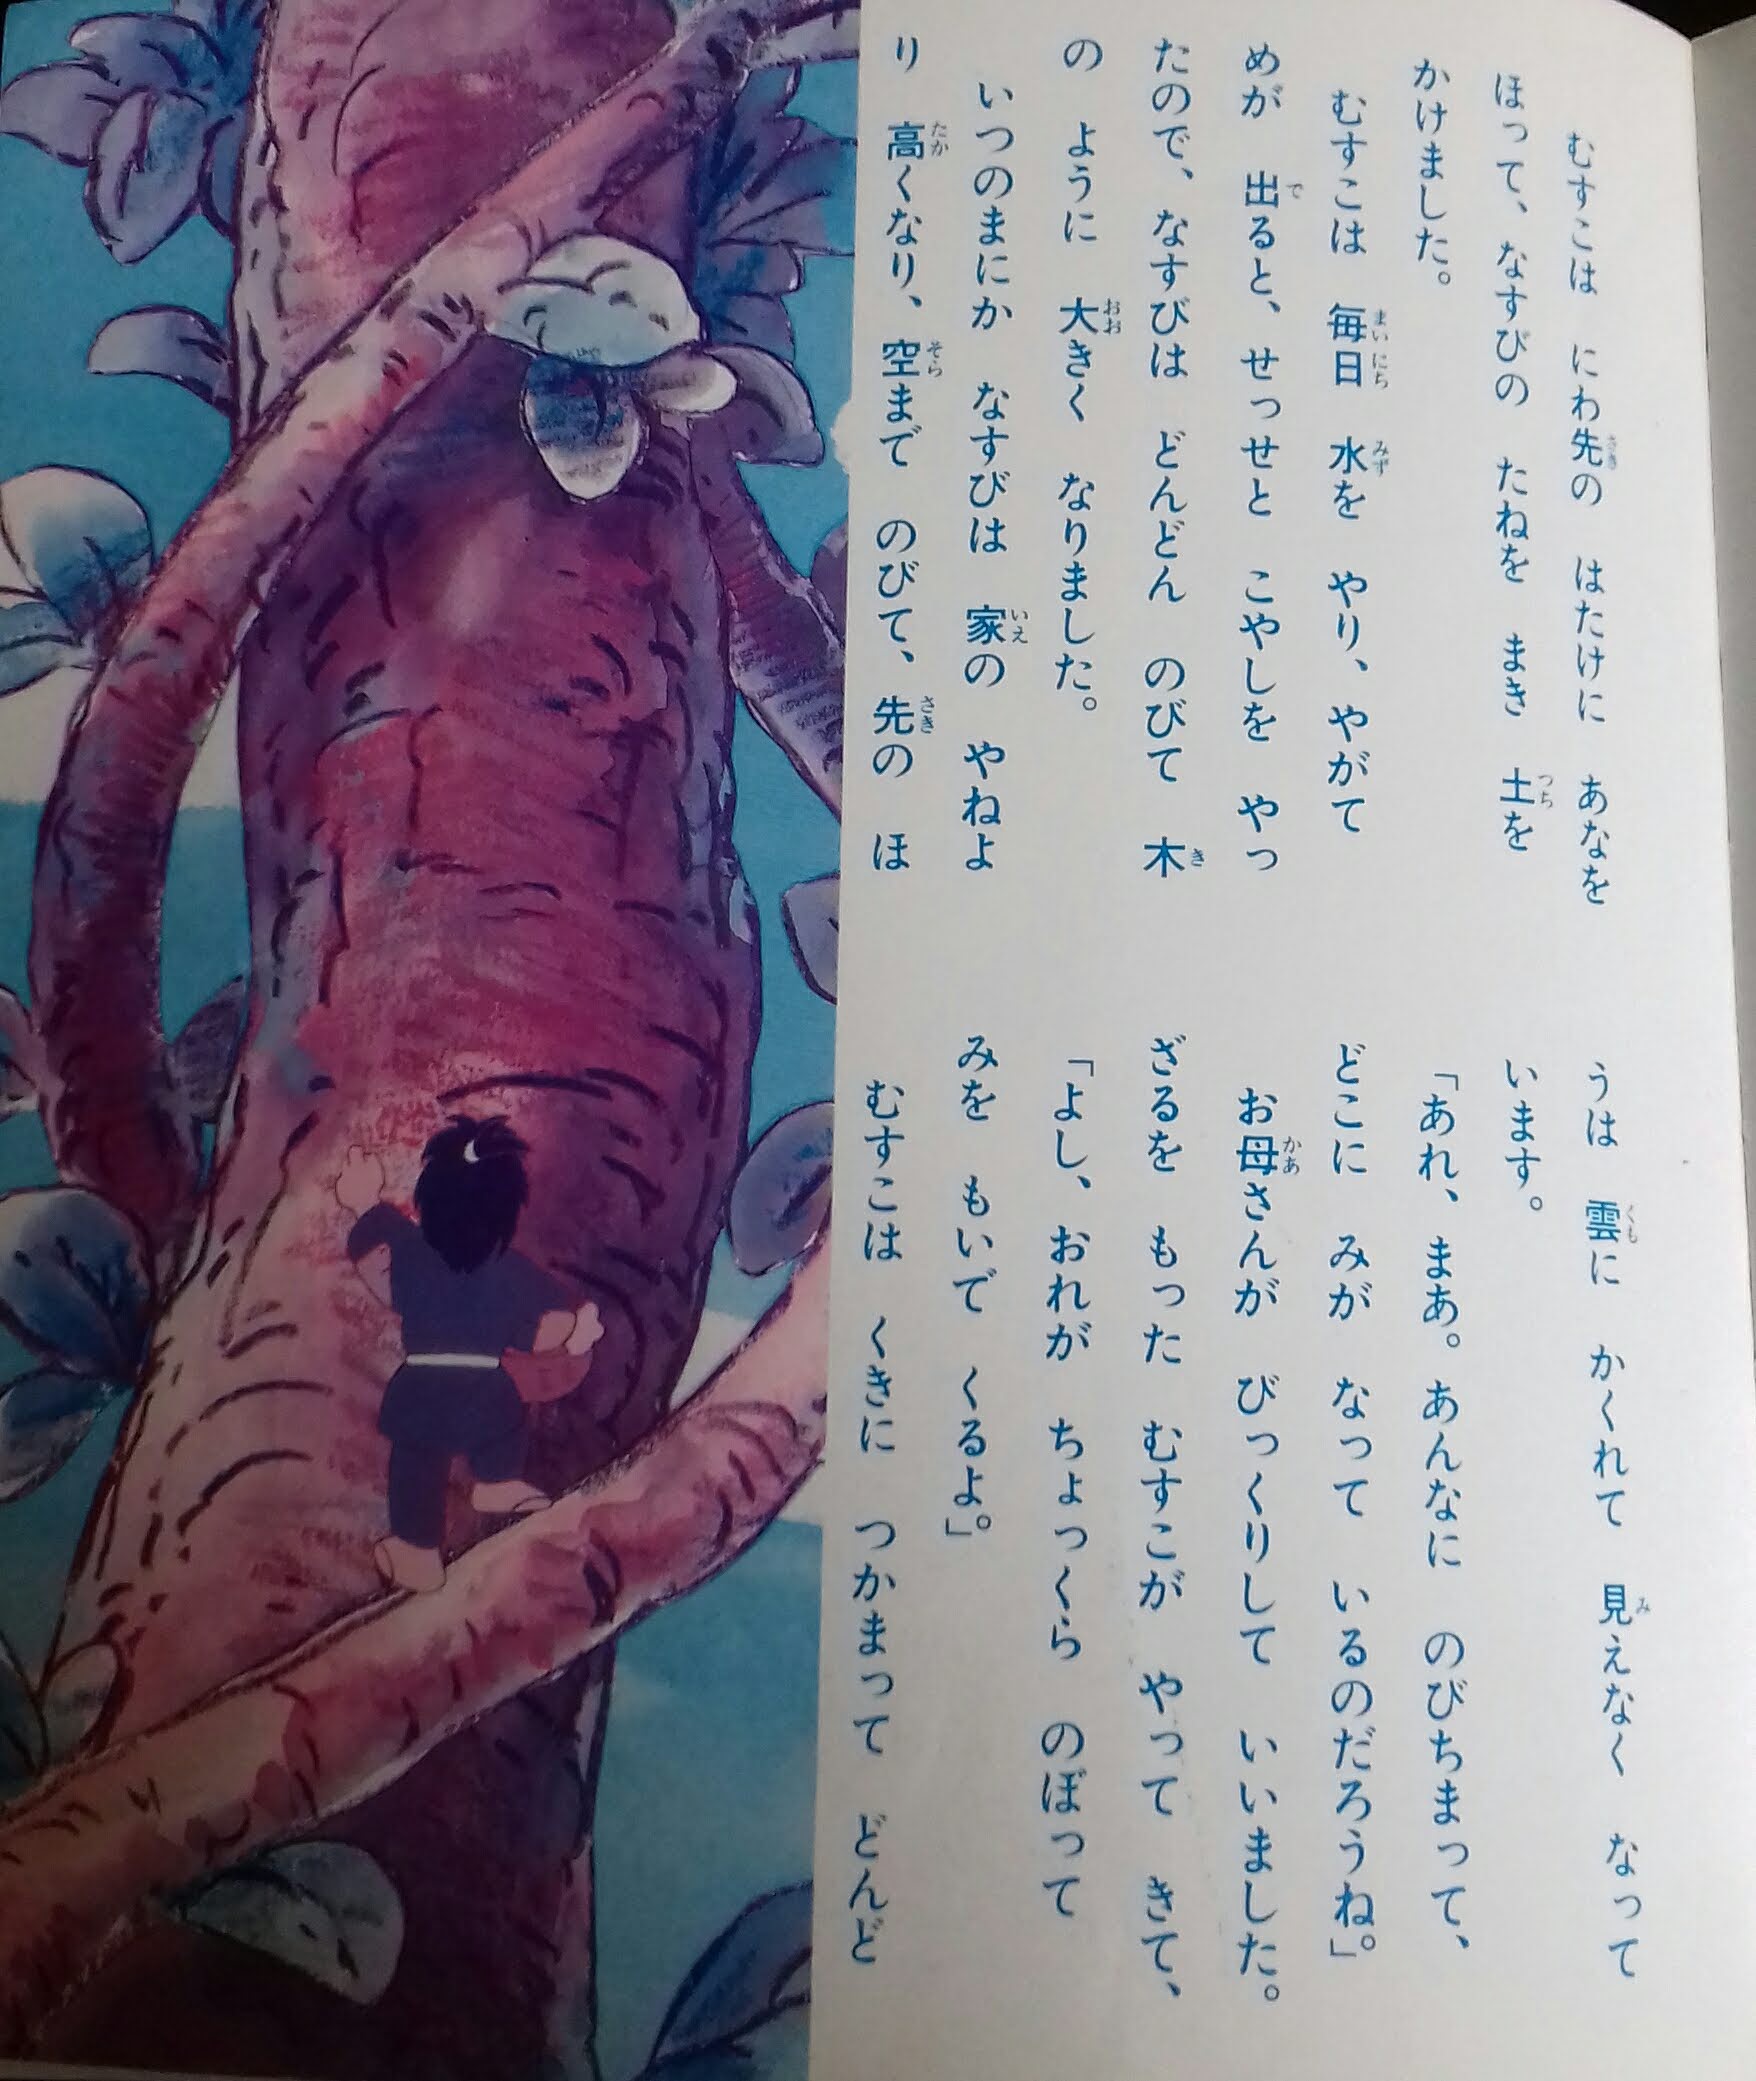 むすこは にわ先の はたけに あなを
ほって、なすびの たねを まき 土を
かけました。
むすこは 毎日 水を やり、やがて
めが 出ると、せっせと こやしを やっ
たので、なすびは どんどん のびて 木
の ように 大きく なりました。
いつのまにか なすびは 家の やねよ
り 高くなり、空まで のびて、先の ほ
うは 雲に かくれて 見えなく なって
います。
「あれ、まあ。あんなに のびちまって、
どこに みが なって いるのだろうね。」
お母さんが びっくりして いいました。
ざるを もった むすこが やって きて、
「よし、おれが ちょっくら のぼって
みを もいで くるよ。」
むすこは くきに つかまって どんど